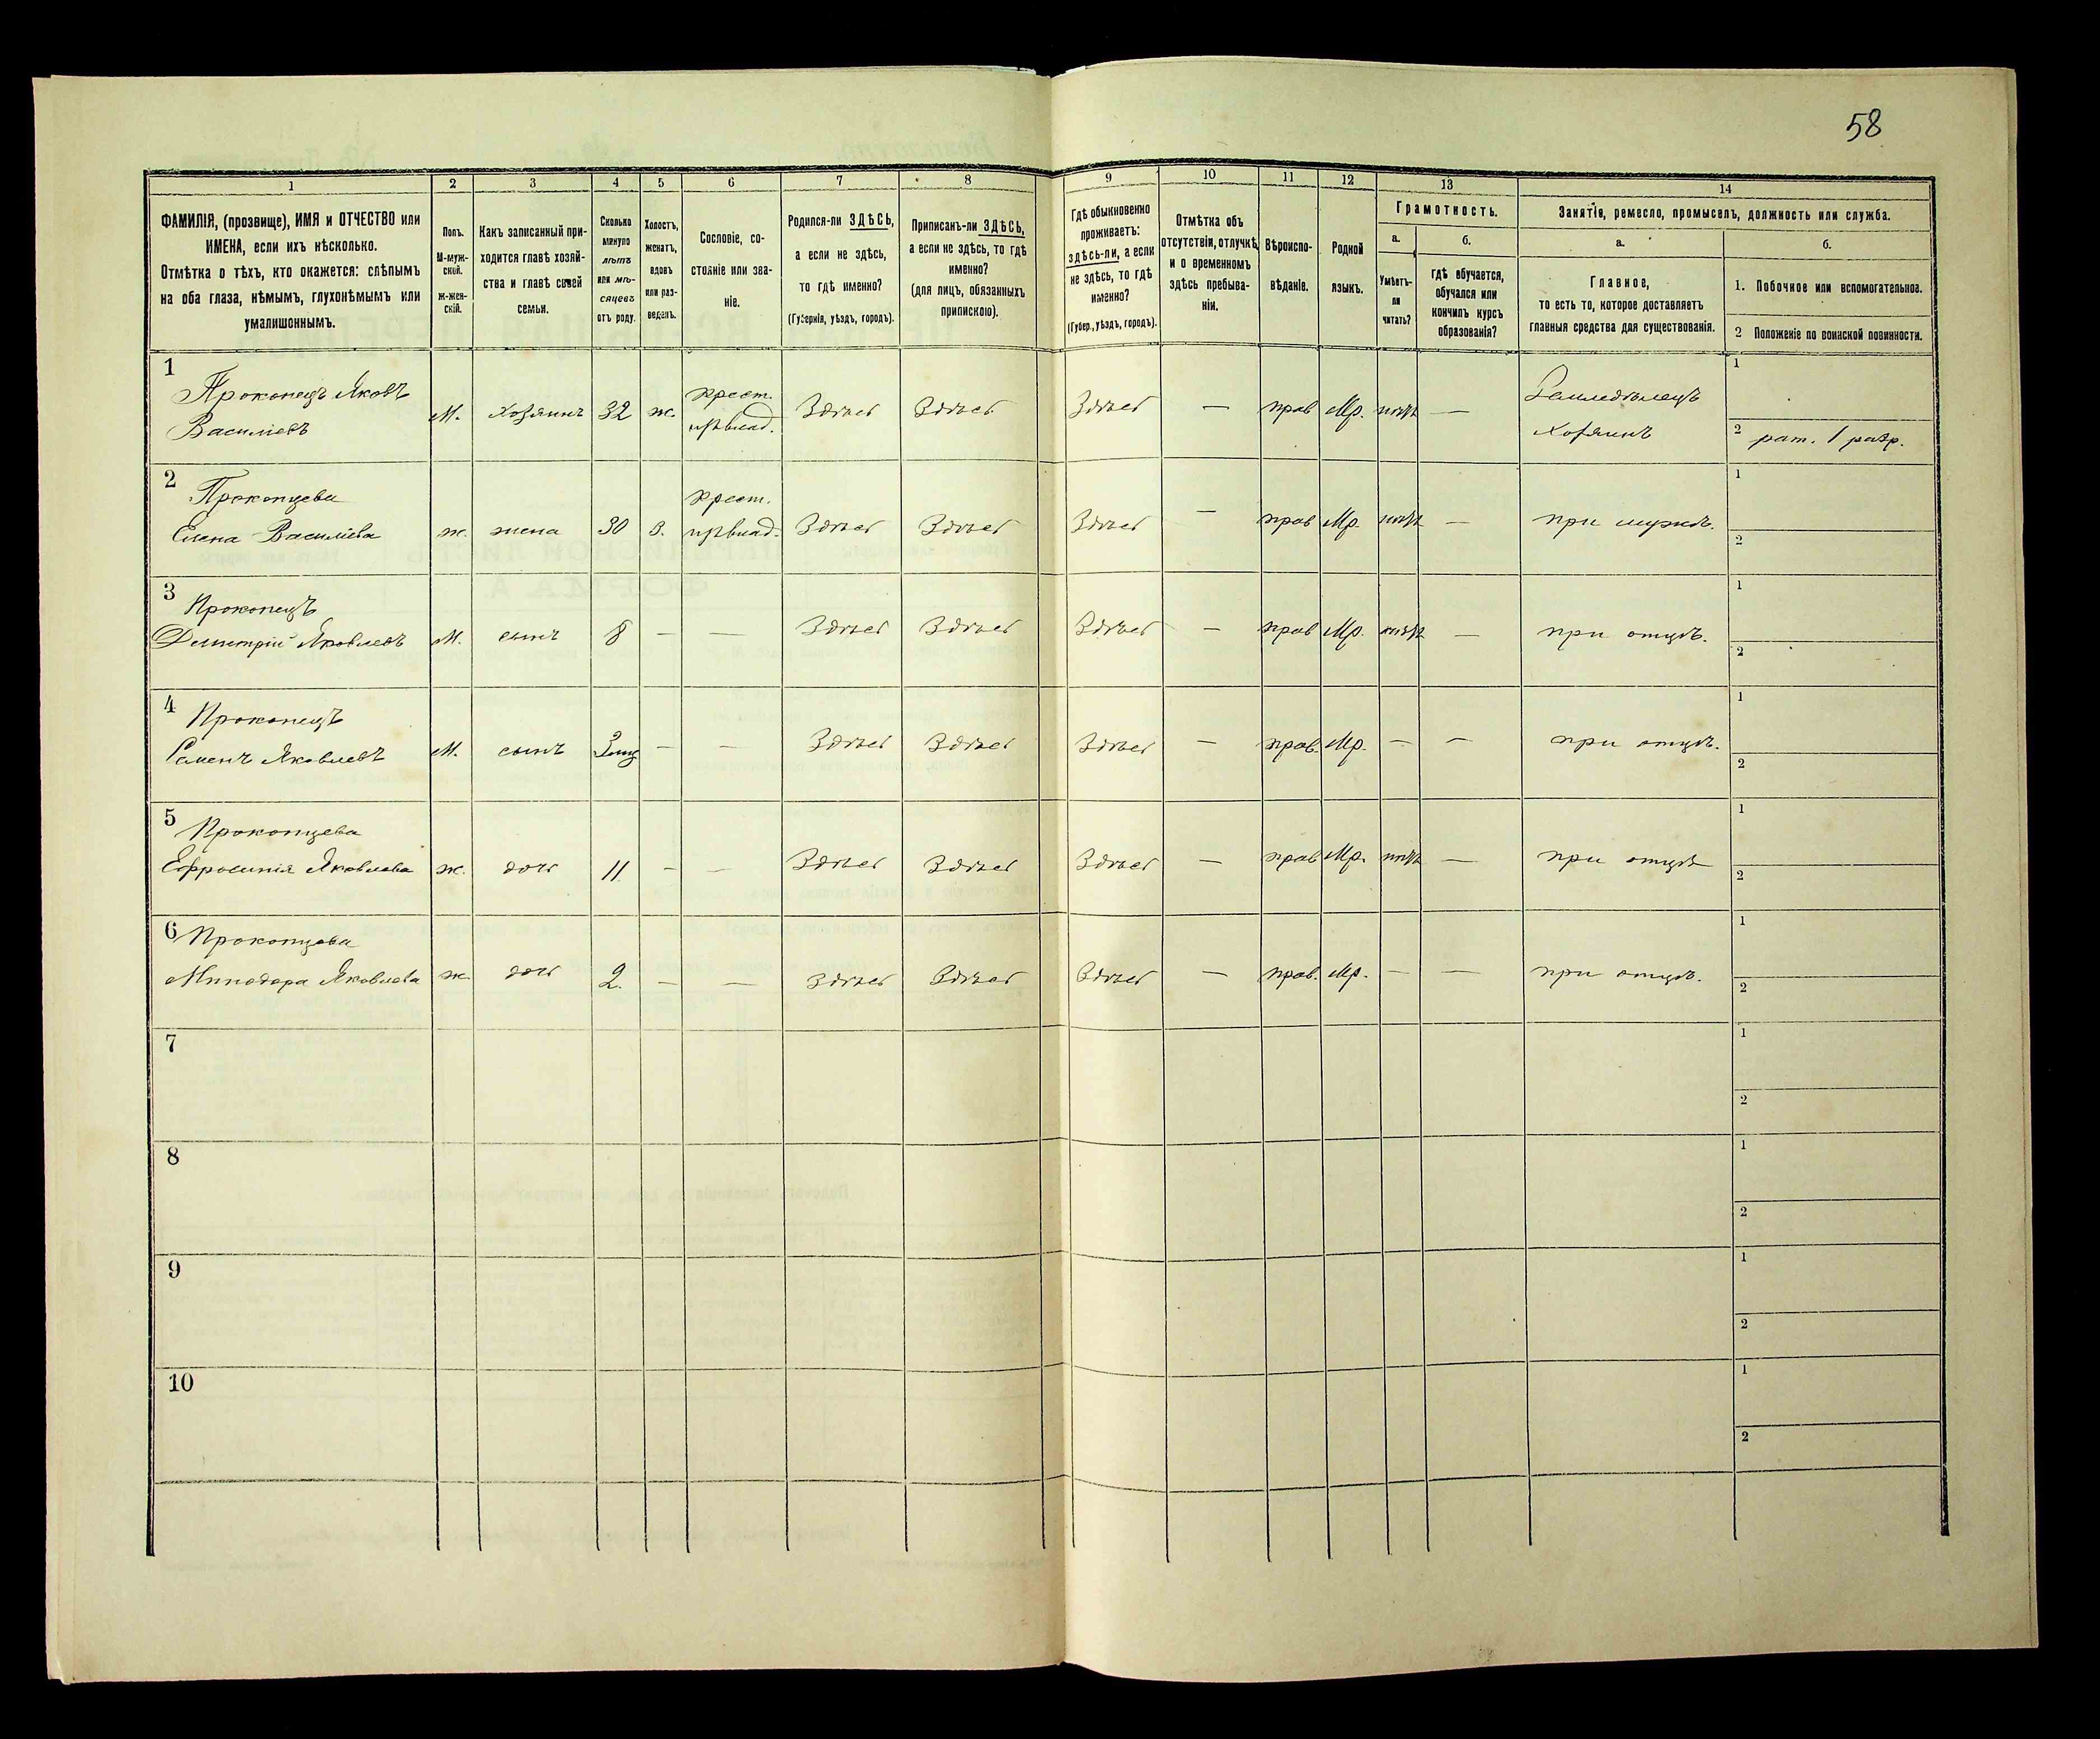 58
1 2 3 4 5 6 7 8 9 10 11 12 13 14
ФАМИЛІЯ, (прозвище), ИМЯ и ОТЧЕСТВО или
ИМЕНА, если ихъ нѣсколько.
Отмѣтка о тѣхъ, кто окажется: слѣпымъ
на оба глаза, нѣмымъ, глухонѣмымъ или
умалишоннымъ.
Полъ.
М-муж-
ской.
ж-жен-
скій.
Какъ записанный при-
ходится главѣ хозяй-
ства и главѣ своей
семьи.
Сколько
минуло
лѣтъ
или мѣ-
сяцевъ
отъ роду.
Холостъ,
женатъ,
вдовъ
или раз-
веденъ.
Сословіе, со-
стояніе или зва-
ніе.
Родился-ли ЗДѢСЬ,
а если не здѣсь,
то гдѣ именно?
(Губернія, уѣздъ, городъ).
Приписанъ-ли ЗДѢСЬ,
а если не здѣсь, то гдѣ
именно?
(для лицъ, обязанныхъ
припискою).
Гдѣ обыкновенно
проживаетъ:
здѣсь-ли, а если
не здѣсь, то гдѣ
именно?
(Губер., уѣздъ, городъ).
Отмѣтка объ
отсутствіи, отлучкѣ
и о временномъ
здѣсь пребыва-
ніи.
Вѣроиспо-
вѣданіе.
Родной
языкъ.
Грамотность.
а.
Умѣетъ-
ли
читать?
б.
гдѣ обучается,
обучался или
кончилъ курсъ
образованія?
Занятіе, ремесло, промыселъ, должность или служба.
а.
Главное,
то есть то, которое доставляетъ
главныя средства для существованія.
б.
1. Побочное или вспомогательное.
2 Положеніе по воинской повинности.
1
Прокопецъ Яковъ
Василіевъ
М. Хозяинъ 32 ж. крест. Здѣсь Здѣсь Здѣсь — прав Мр. — Земледѣлецъ
Хозяинъ
1
2 рат. 1 разр.
2
Прокопцева
Елена Василіева
ж. жена 30 З. крест. Здѣсь Здѣсь Здѣсь — прав Мр. — при мужѣ.
1
2
3
Прокопецъ
Димитрій Яковлевъ
М. сынъ 8 — — Здѣсь Здѣсь Здѣсь — прав Мр. — при отцѣ.
1
2
4
Прокопецъ
Семенъ Яковлевъ
М. сынъ — — Здѣсь Здѣсь Здѣсь — прав. Мр. — — при отцѣ.
1
2
5
Прокопцева
Ефросинія Яковлева
ж. дочь 11 — — Здѣсь Здѣсь Здѣсь — прав Мр. — при отцѣ
1
2
6
Прокопцева
Минодора Яковлева
ж. дочь 2. — — Здѣсь Здѣсь Здѣсь — прав. Мр. — — при отцѣ.
1
2
7
1
2
8
1
2
9
1
2
10
1
2